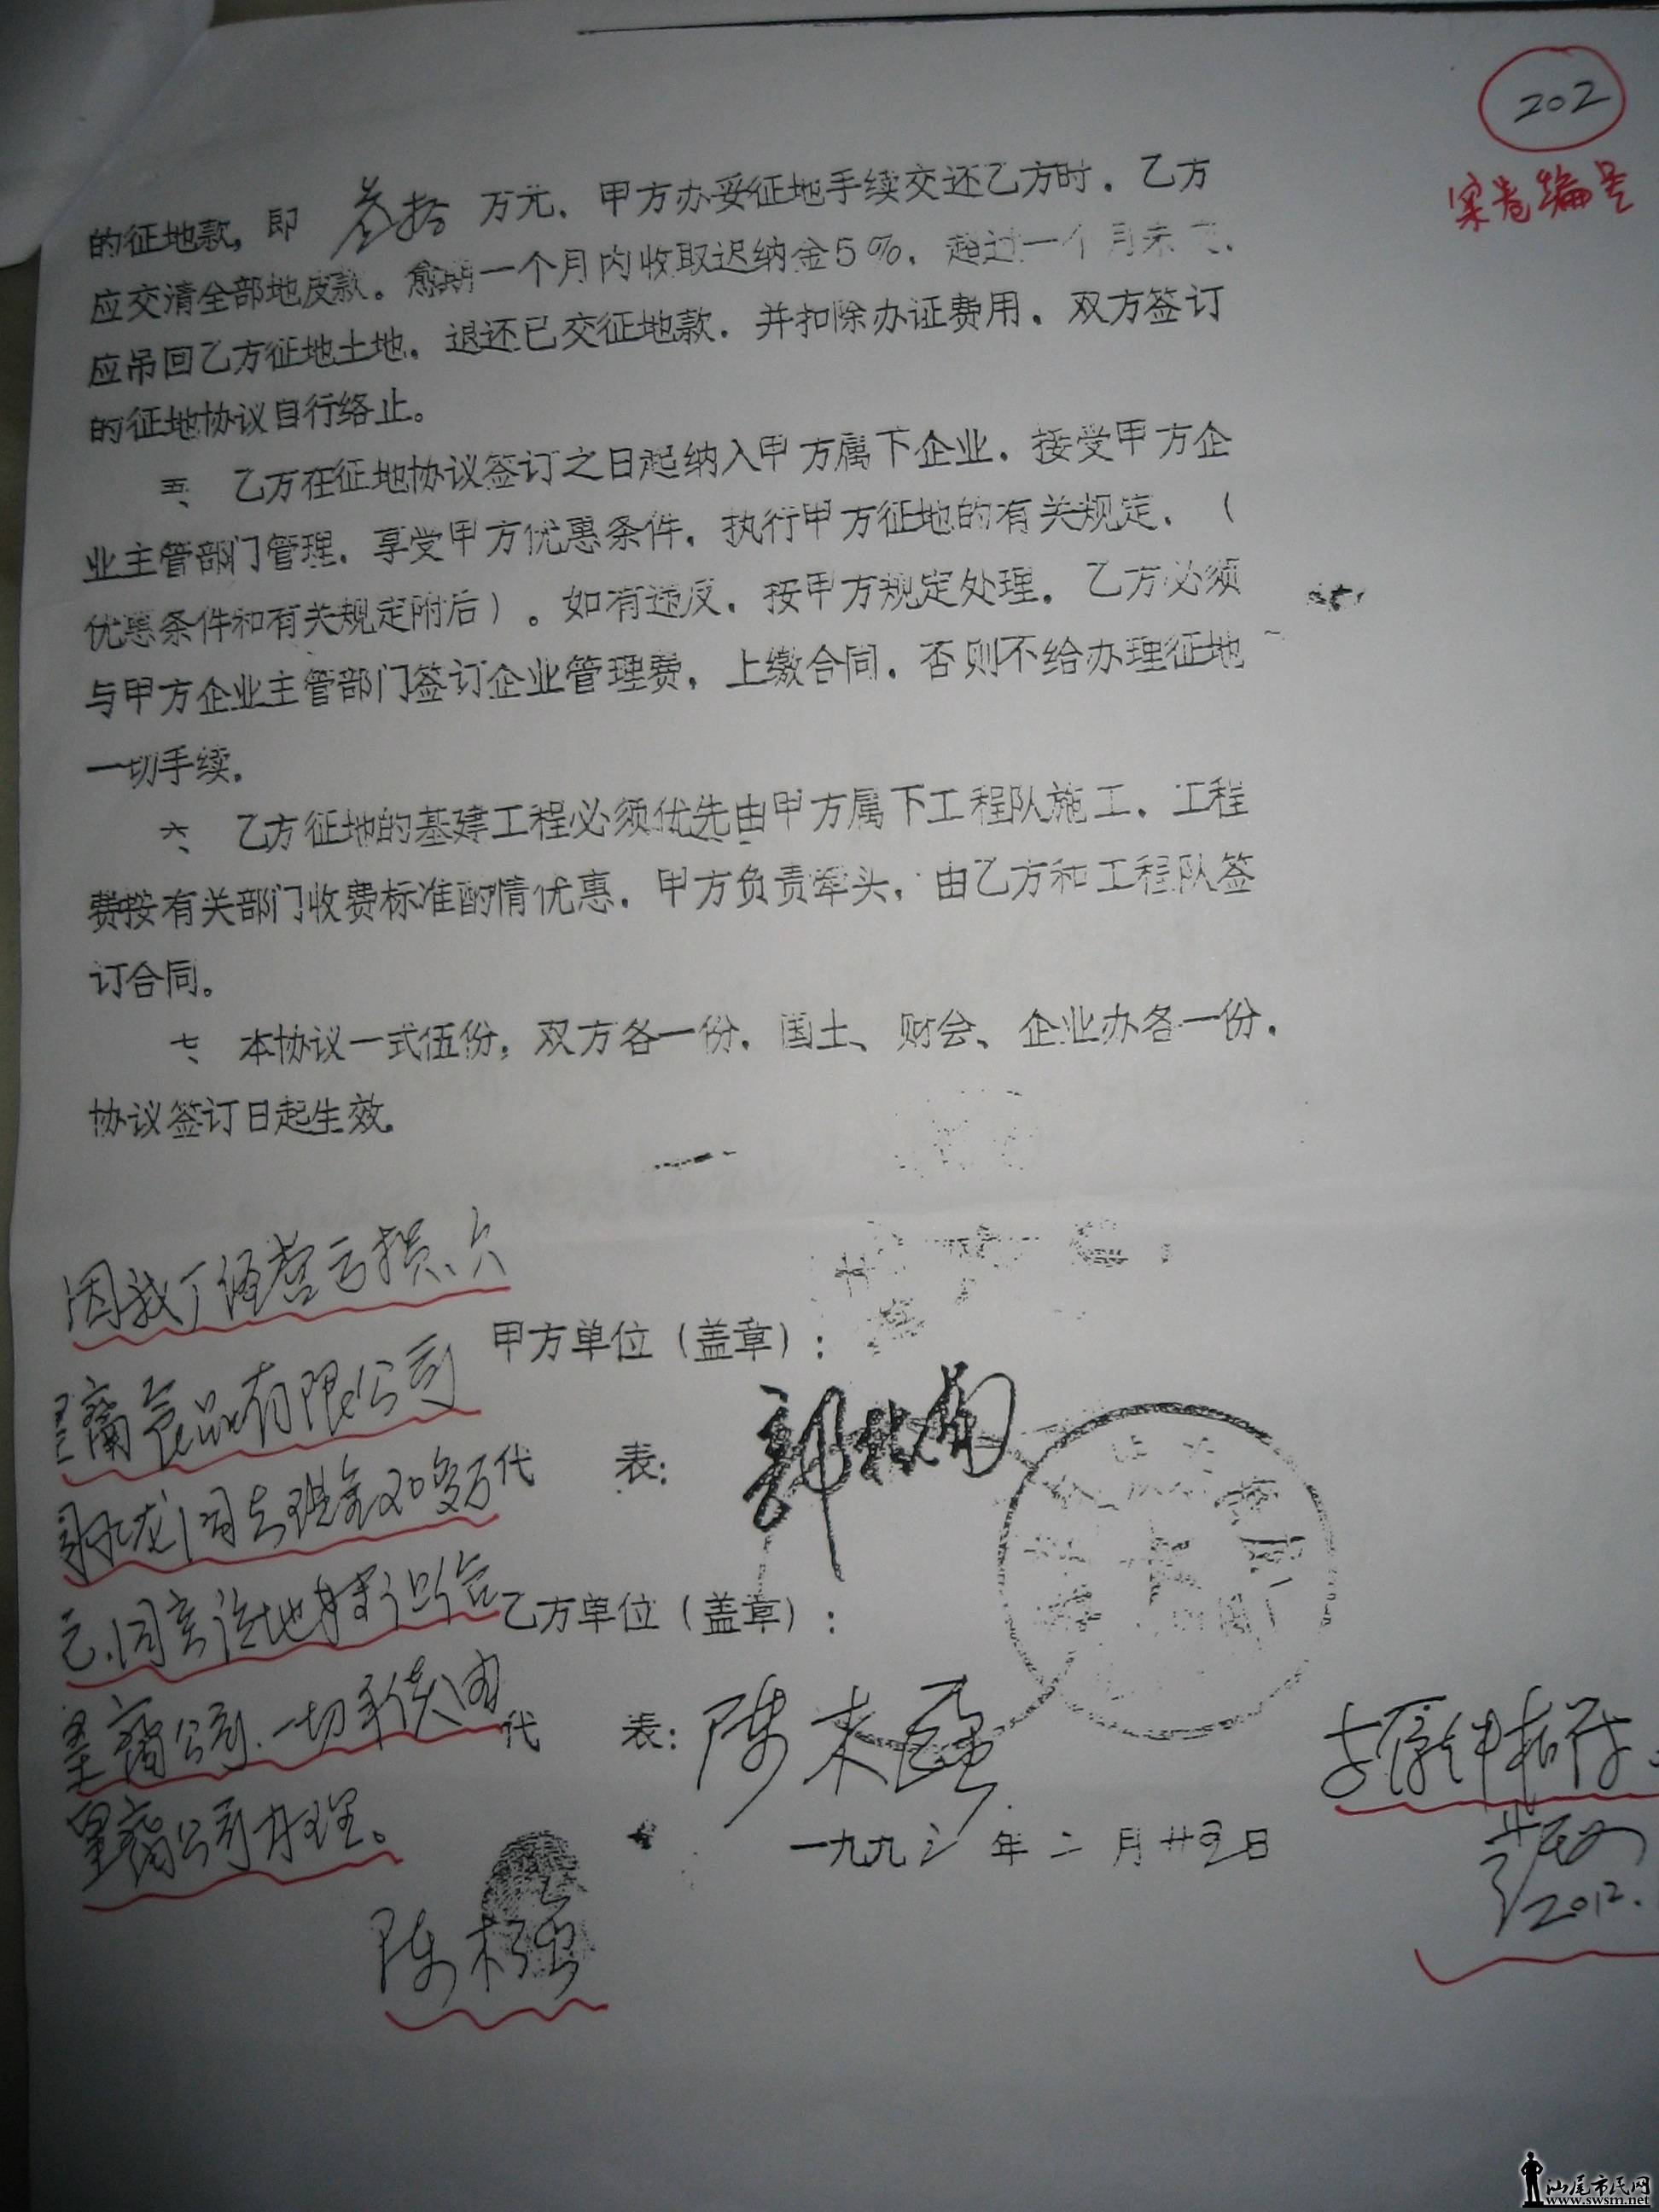 202
案卷编号
的征地款，即 叁拾 万元．甲方办妥征地手续交还乙方时．乙方
应交清全部地皮款。愈期一个月内收取迟纳金5%．超过一个月未
应吊回乙方征地土地．退还已交征地款．并扣除办证费用．双方签订
的征地协议自行络止。
五、乙方在征地协议签订之日起纳入甲方属下企业．接受甲方企
业主管部门管理．享受甲方优惠条件．执行甲方征地的有关规定．（
优惠条件和有关规定附后）。如有违反．按甲方规定处理．乙方必须
与甲方企业主管部门签订企业管理费，上缴合同．否则不给办理征地
一切手续．
六、乙方征地的基建工程必须优先由甲方属下工程队施工．工程
费按有关部门收费标准酌情优惠．甲方负责牵头，由乙方和工程队签
订合同。
七、本协议一式伍份，双方各一份．国土、财会、企业办各一份．
协议签订日起生效．
因我厂经营亏损、欠
甲方单位（盖章）：
食品有限公司
代 表：
现金20多万
元．同意该地转让给
乙方单位（盖章）：
公司．一切手续由
代 表：陈末强
公司办理。
一九九三年二月廿四日
陈末强
2012.
汕尾市民网
www.swsm.net